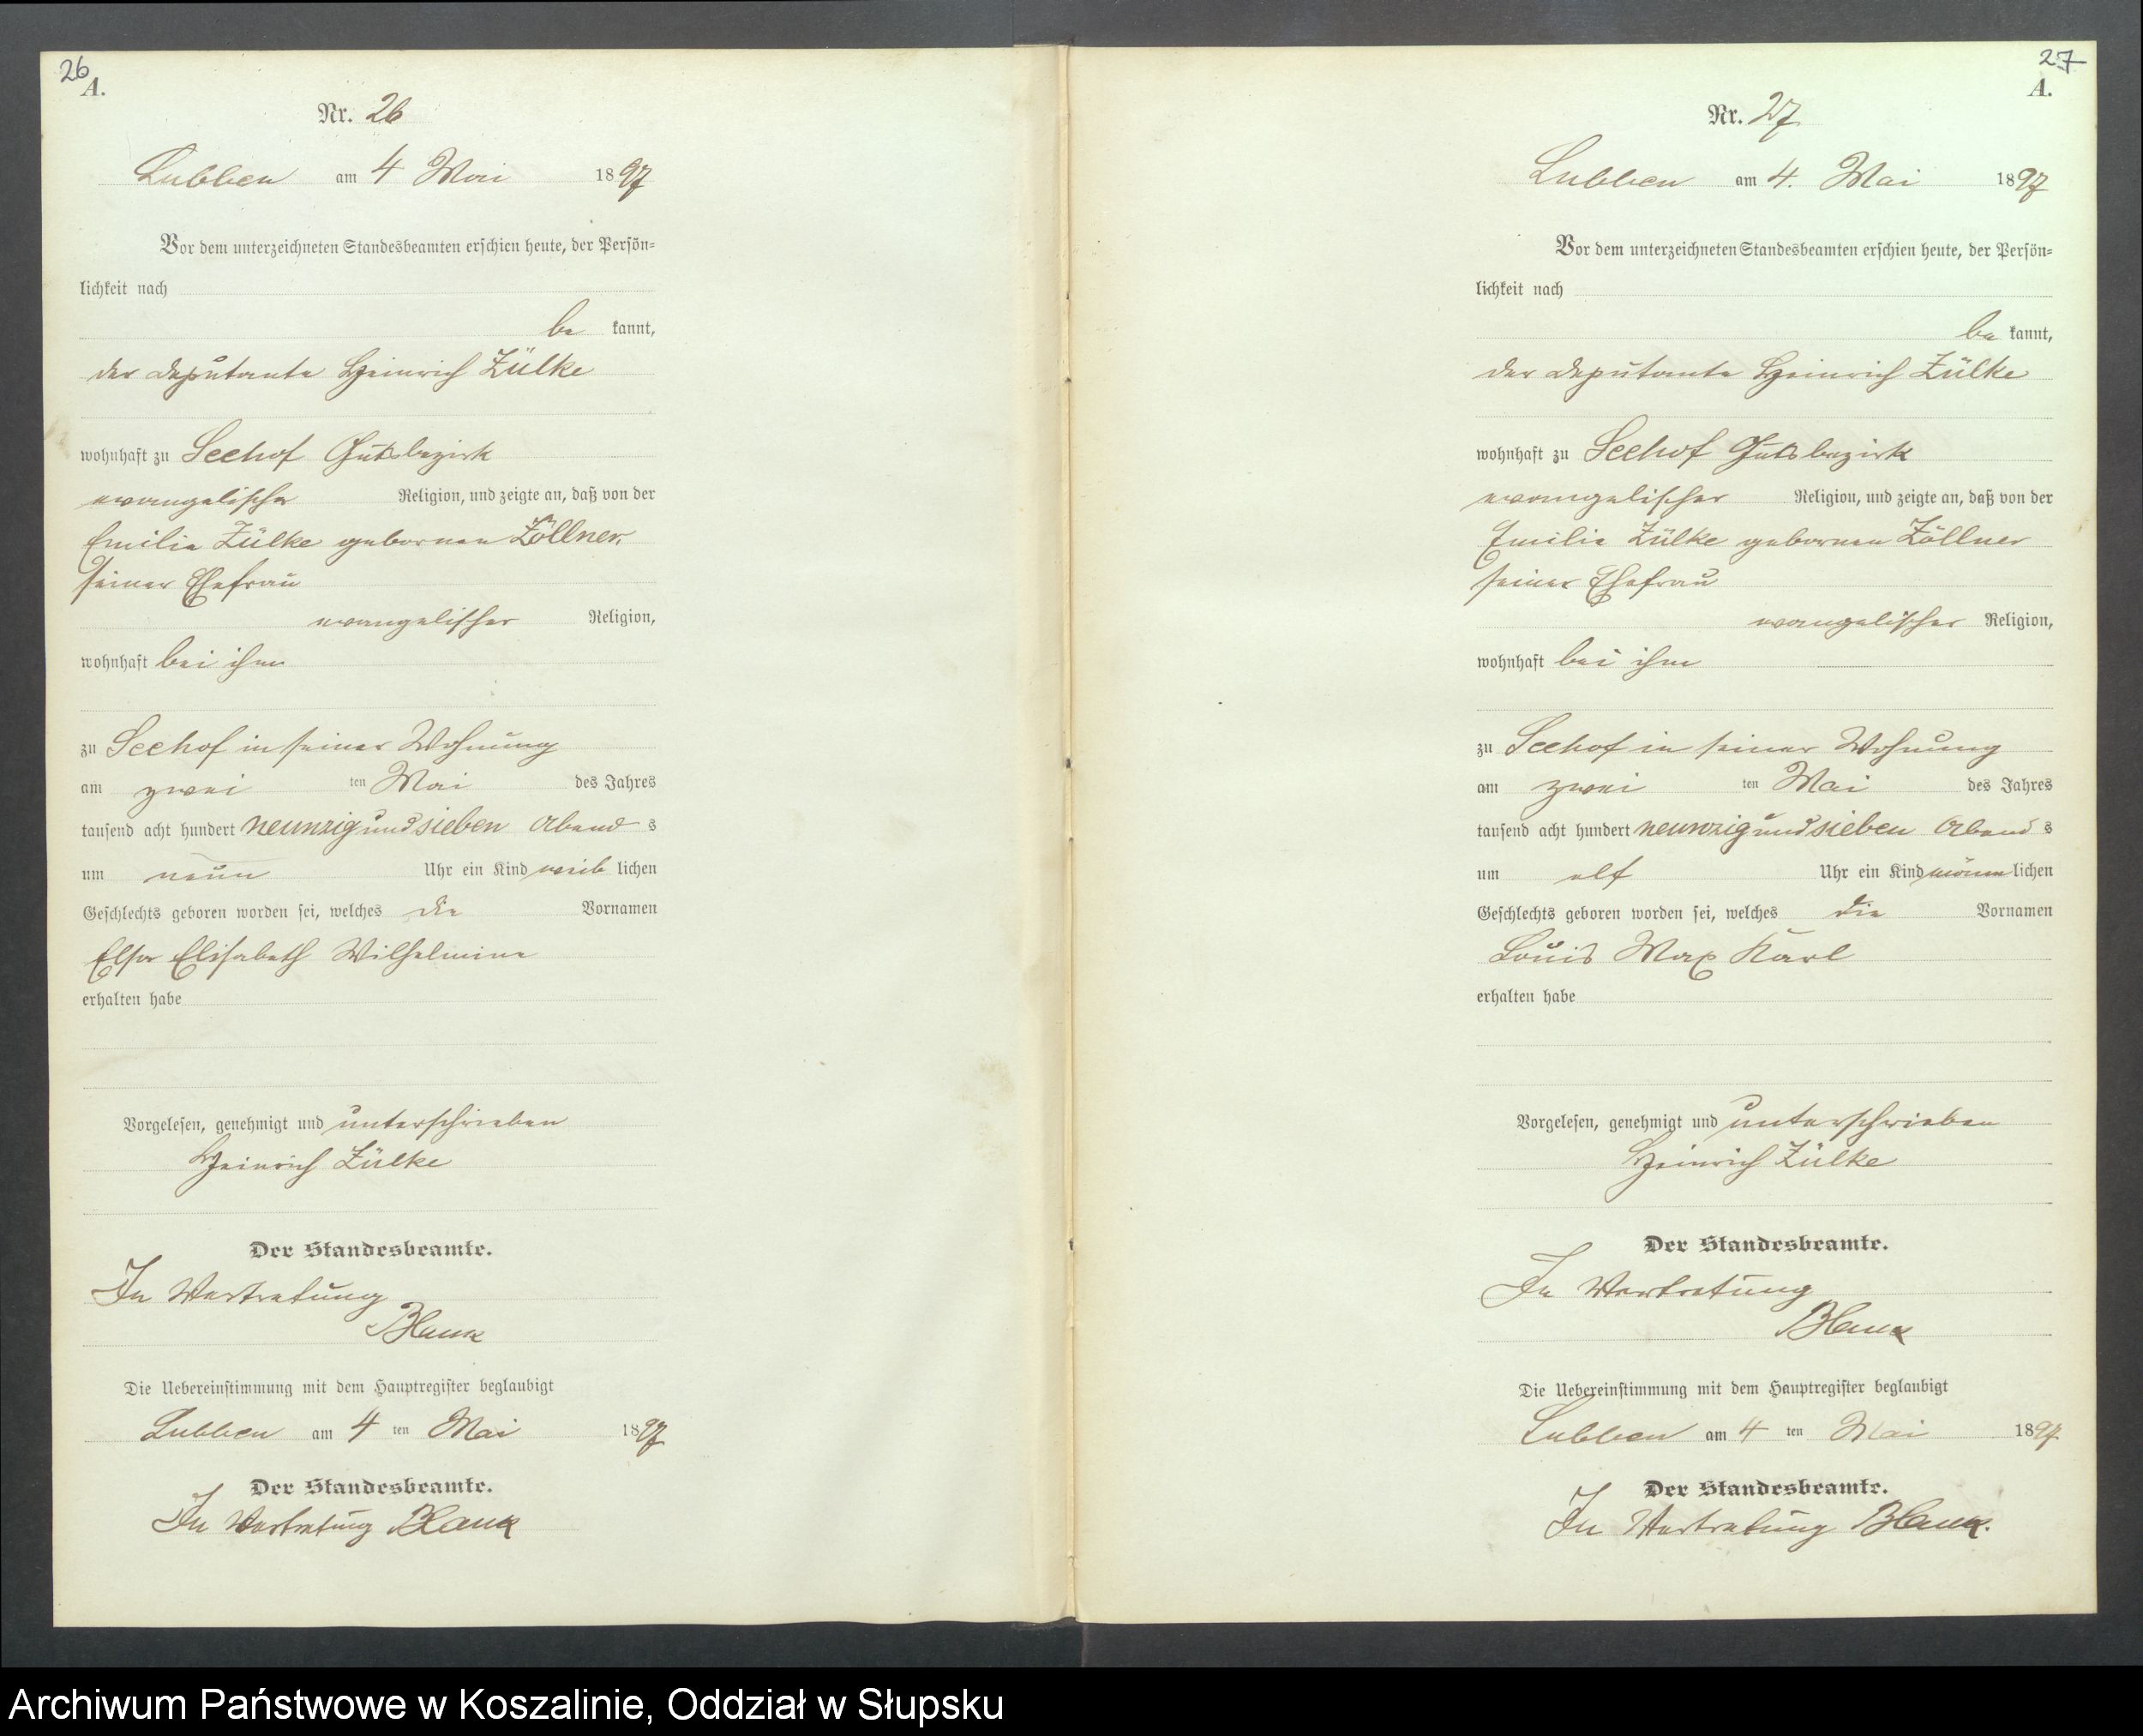 26
A.
Nr. 26
Lubben am 4 Mai 1897
Vor dem unterzeichneten Standesbeamten erschien heute, der Persön=
lichkeit nach
be kannt,
der Deputante Heinrich Zülke
wohnhaft zu Seehof Gutsbezirk
evangelischer Religion, und zeigte an, daß von der
Emilie Zülke geborenen Zöllner,
seiner Ehefrau
evangelischer Religion,
wohnhaft bei ihm
zu Seehof in seiner Wohnung
am zwei ten Mai des Jahres
tausend acht hundert neunzig und sieben Abend s
um neun Uhr ein Kind weib lichen
Geschlechts geboren worden sei, welches die Vornamen
Elsa Elisabeth Wilhelmine
erhalten habe
Vorgelesen, genehmigt und unterschrieben
Heinrich Zülke
Der Standesbeamte.
In Vertretung
Blank
Die Uebereinstimmung mit dem Hauptregister beglaubigt
Lubben am 4 ten Mai 1897
Der Standesbeamte.
In Vertretung Blank
27
A.
Nr. 27
Lubben am 4. Mai 1897
Vor dem unterzeichneten Standesbeamten erschien heute, der Persön=
lichkeit nach
be kannt,
der Deputante Heinrich Zülke
wohnhaft zu Seehof Gutsbezirk
evangelischer Religion, und zeigte an, daß von der
Emilie Zülke geborenen Zöllner
seiner Ehefrau
evangelischer Religion,
wohnhaft bei ihm
zu Seehof in seiner Wohnung
am zwei ten Mai des Jahres
tausend acht hundert neunzig und sieben Abend s
um elf Uhr ein Kind männ lichen
Geschlechts geboren worden sei, welches die Vornamen
Louis Max Karl
erhalten habe
Vorgelesen, genehmigt und unterschrieben
Heinrich Zülke
Der Standesbeamte.
In Vertretung
Blank
Die Uebereinstimmung mit dem Hauptregister beglaubigt
Lubben am 4 ten Mai 1897
Der Standesbeamte.
In Vertretung Blank.
Archiwum Państwowe w Koszalinie, Oddział w Słupsku